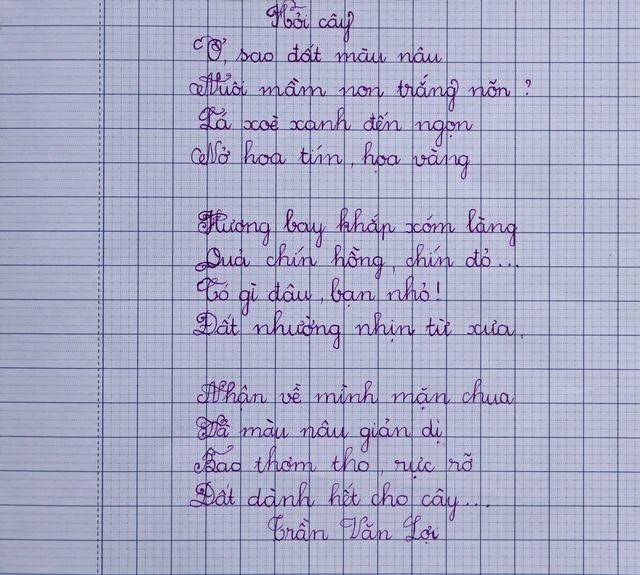 Hỏi cây
Ơ, sao đất màu nâu
Nuôi mầm non trắng nõn ?
Lá xoè xanh đến ngọn
Nở hoa tím, hoa vàng
Hương bay khắp xóm làng
Quả chín hồng, chín đỏ...
Có gì đâu, bạn nhỏ!
Đất nhường nhịn từ xưa.
Nhận về mình mặn chua
Và màu nâu giản dị
Bao thơm tho, rực rỡ
Đất dành hết cho cây...
Trần Văn Lợi